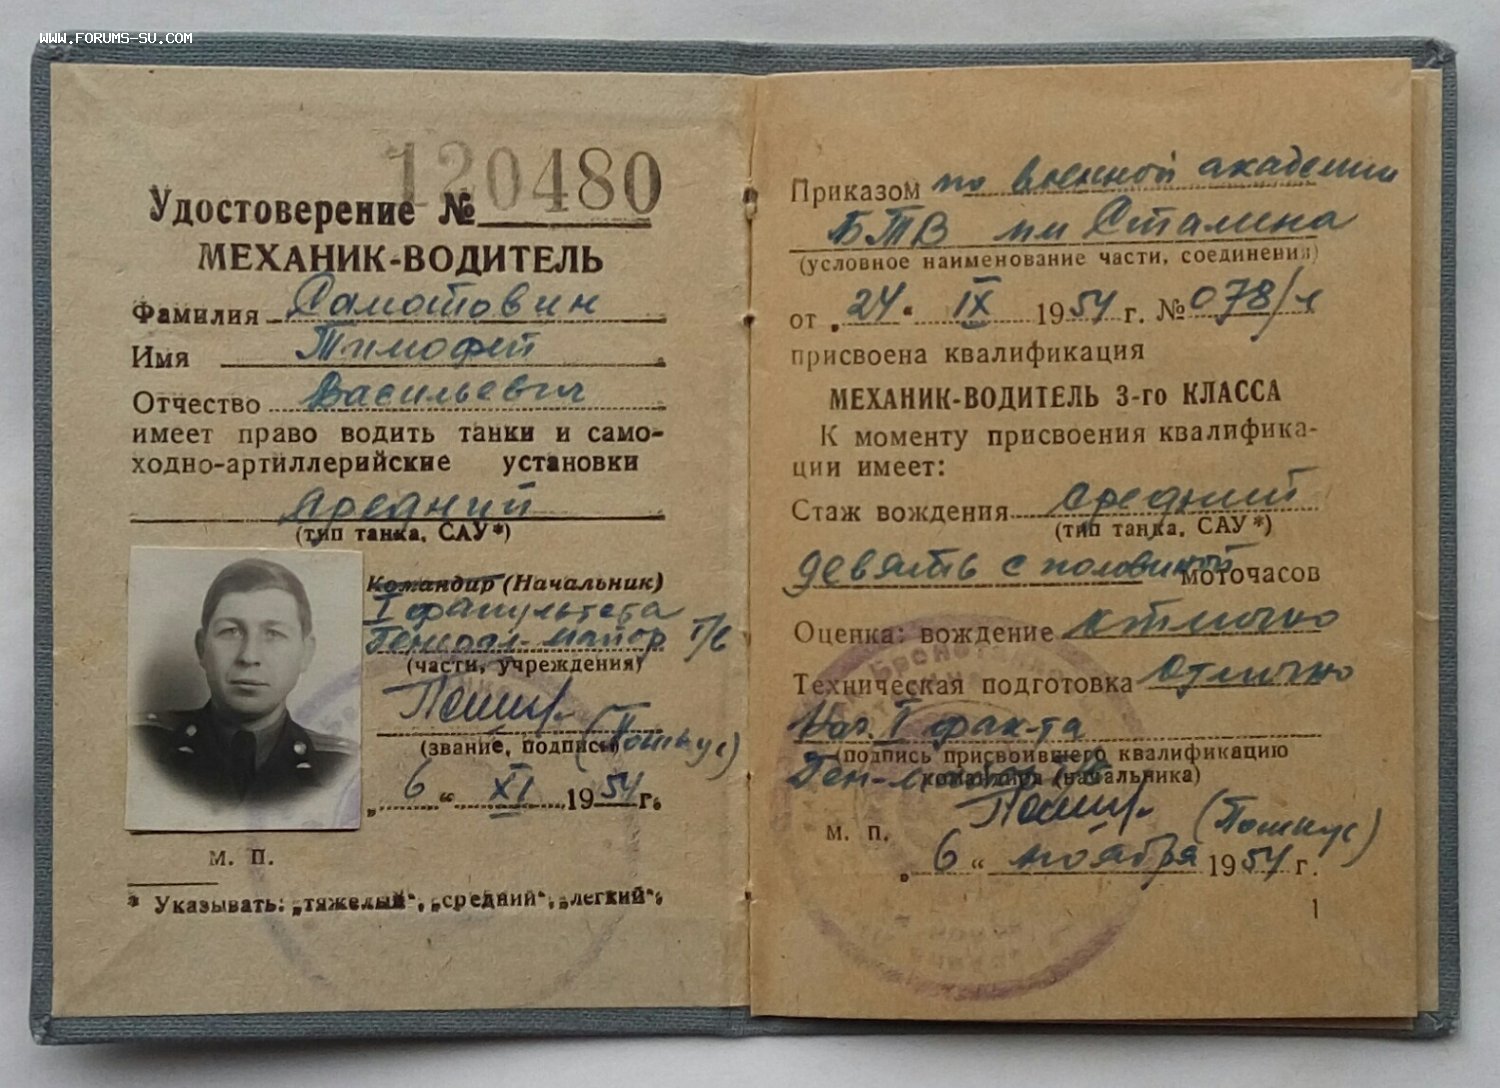 www.forums-su.com
120480
Удостоверение №
МЕХАНИК-ВОДИТЕЛЬ
Фамилия Самотовин
Имя Тимофей
Отчество Васильевич
имеет право водить танки и само-
ходно-артиллерийские установки
средний
(тип танка, САУ*)
Командир (Начальник)
I факультета
Генерал-майор т/в
(части, учреждения)
(Пошкус)
(звание, подпись)
„6“ XI 1954 г.
м. п.
* Указывать: „тяжелый“, „средний“, „легкий“.
Приказом по военной академии
БТВ им Сталина
(условное наименование части, соединения)
от „24“ IX 1954 г. № 078/л
присвоена квалификация
МЕХАНИК-ВОДИТЕЛЬ 3-го КЛАССА
К моменту присвоения квалифика-
ции имеет:
Стаж вождения средний
(тип танка, САУ*)
девять с половиной моточасов
Оценка: вождение отлично
Техническая подготовка отлично
Нач. I фак-та
(подпись присвоившего квалификацию
командира (начальника)
Ген-майор т/в
(Пошкус)
м. п.
„6“ ноября 1954 г.
1